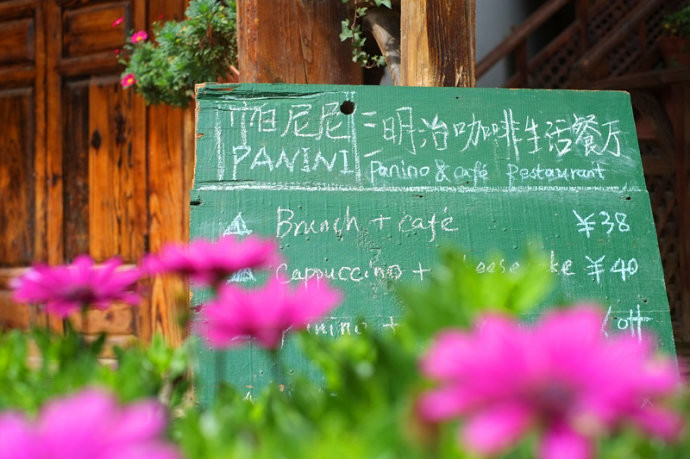 帕尼尼=明治咖啡生活餐厅
PANINI = Panino & café Restaurant
Brunch + café ¥38
Cappuccino + ¥40
panino + off